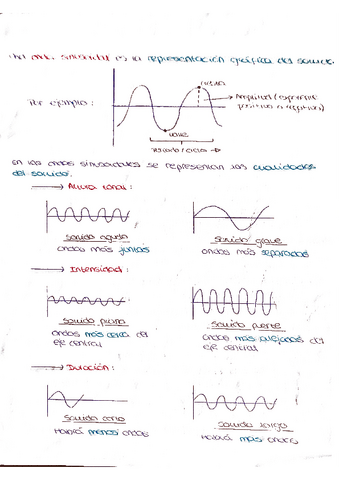 Una onda sinusoidal es la representación gráfica del sonido.
cresta
Por ejemplo:
Amplitud (extremo
positivo o negativo)
valle
Período / ciclo
En las ondas sinusoidales se representan las cualidades
del sonido:
Altura tonal:
Sonido agudo
ondas más juntas
Sonido grave
ondas más separadas
Intensidad:
Sonido piano
ondas más cerca del
eje central
Sonido fuerte
ondas más alejadas del
eje central
Duración:
Sonido corto
Habrá menos ondas
Sonido largo
Habrá más ondas